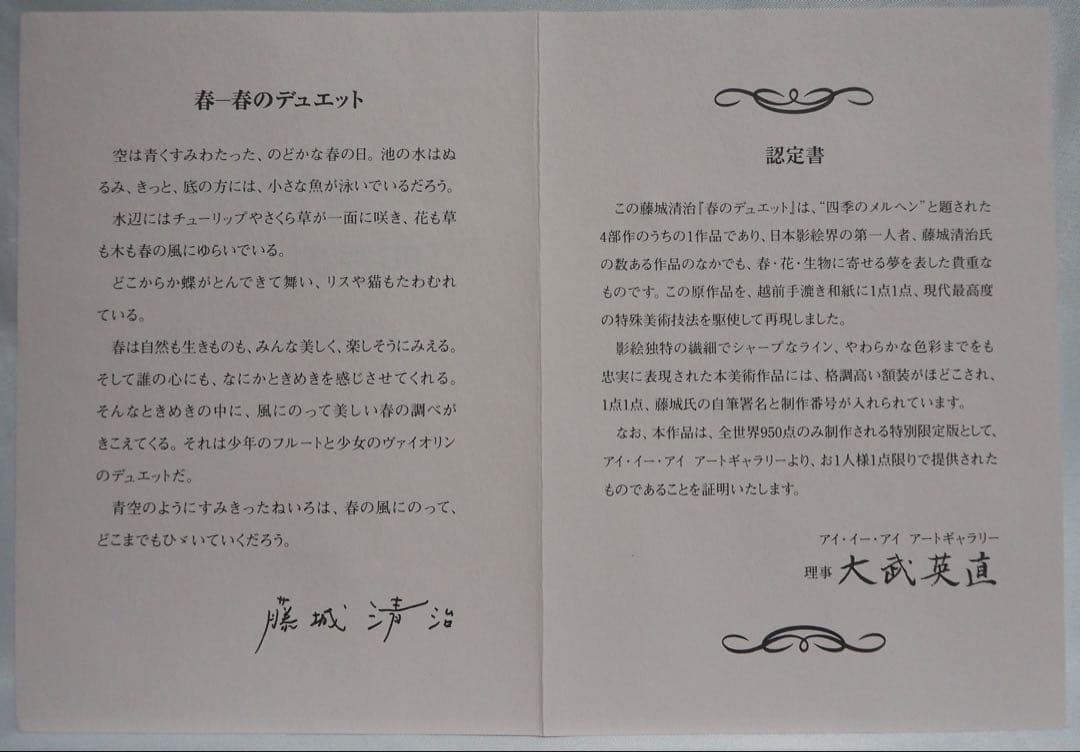 春─春のデュエット
空は青くすみわたった、のどかな春の日。池の水はぬ
るみ、きっと、底の方には、小さな魚が泳いでいるだろう。
水辺にはチューリップやさくら草が一面に咲き、花も草
も木も春の風にゆらいでいる。
どこからか蝶がとんできて舞い、リスや猫もたわむれ
ている。
春は自然も生きものも、みんな美しく、楽しそうにみえる。
そして誰の心にも、なにかときめきを感じさせてくれる。
そんなときめきの中に、風にのって美しい春の調べが
きこえてくる。それは少年のフルートと少女のヴァイオリン
のデュエットだ。
青空のようにすみきったねいろは、春の風にのって、
どこまでもひゞいていくだろう。
藤城清治
認定書
この藤城清治『春のデュエット』は、“四季のメルヘン”と題された
4部作のうちの1作品であり、日本影絵界の第一人者、藤城清治氏
の数ある作品のなかでも、春・花・生物に寄せる夢を表した貴重な
ものです。この原作品を、越前手漉き和紙に1点1点、現代最高度
の特殊美術技法を駆使して再現しました。
影絵独特の繊細でシャープなライン、やわらかな色彩までをも
忠実に表現された本美術作品には、格調高い額装がほどこされ、
1点1点、藤城氏の自筆署名と制作番号が入れられています。
なお、本作品は、全世界950点のみ制作される特別限定版として、
アイ・イー・アイ アートギャラリーより、お1人様1点限りで提供された
ものであることを証明いたします。
アイ・イー・アイ アートギャラリー
理事 大武英直